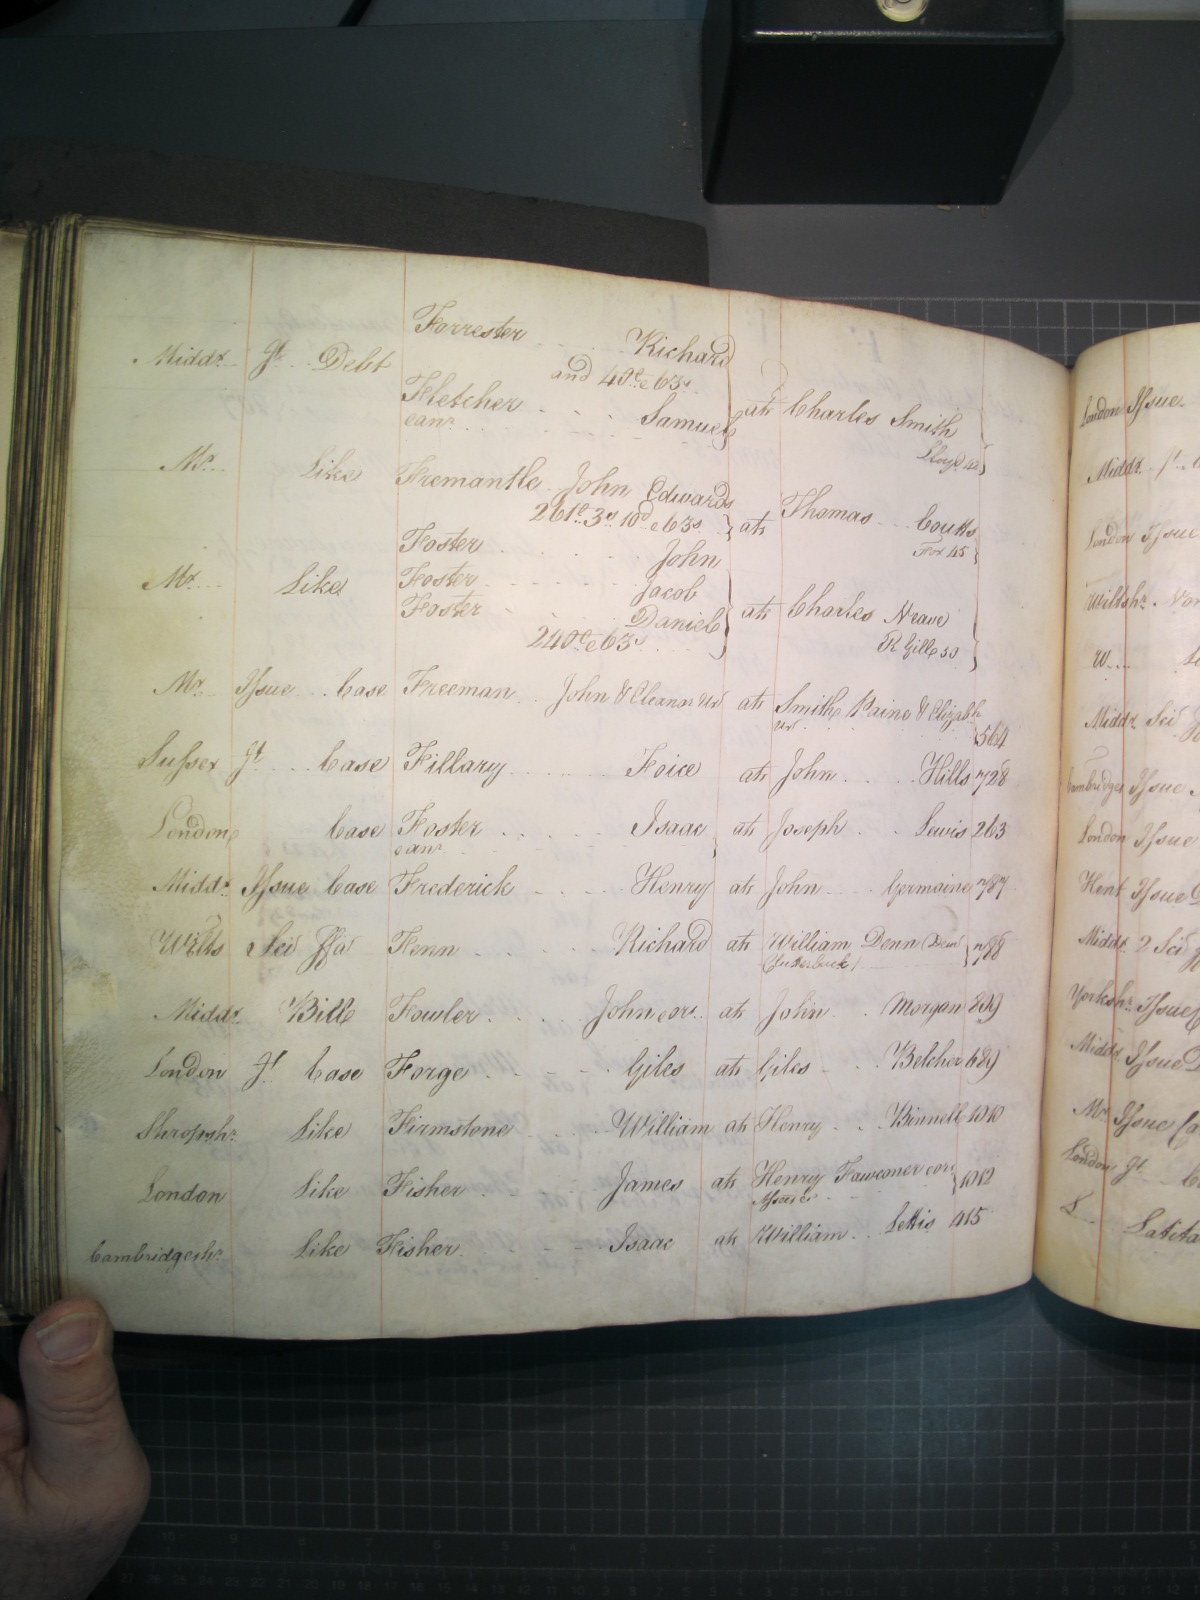 Forrester Richard
Middx Jt Debt and 40£ & 63s
Fletcher Samuel } ats Charles Smith
Lloyd 42
Mx Like Fremantle John Edward
261£ 3s 10d & 63s } ats Thomas Coutts
Fox 45
Foster John
Mx Like Foster Jacob
Foster Daniel } ats Charles Neave
240£ & 63s R Gill 50
Mx Issue Case Freeman John & Eleanor Ux ats Smith Paine & Elizabth
Ux 564
Sussex Jt Case Fillary Foice ats John Hills 728
London Case Foster Isaac ats Joseph Lewis 263
Middx Issue Case Frederick Henry ats John Germaine 787
Wilts Sci ffa Fenn Richard ats William Denn (Dem
Clutterbuck) } 788
Middx Bill Fowler John exr ats John Morgan 899
London Jt Case Forge Giles ats Giles Belcher 689
Shropshr Like Firmstone William ats Henry Binnell 1010
London Like Fisher James ats Henry Fawconer
} 1012
Cambridgeshr Like Fisher Isaac ats William Lettis 415
London Issue
Middx Jt
London Issue
Wiltshr
W
Middx Sci
Cambridges Issue
London Issue
Kent Issue
Middx 2 Sci
Yorkshr Issue
Middx Issue
Mx Issue
London Jt
L Latita